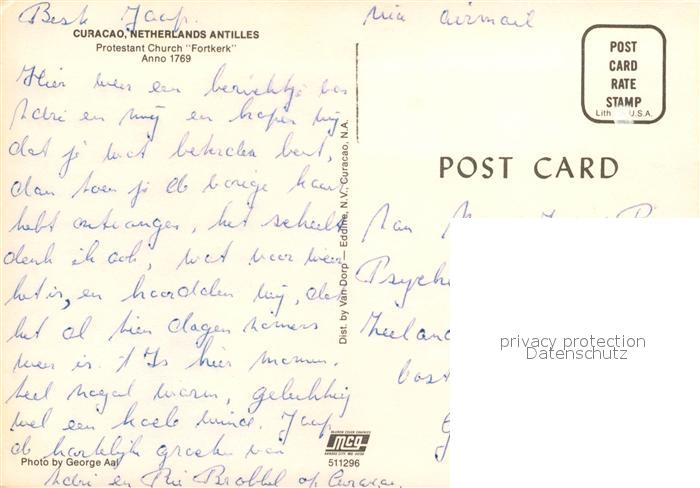 Best Jaap.
via airmail
CURACAO, NETHERLANDS ANTILLES
Protestant Church "Fortkerk"
Anno 1769
Hier weer een berichtje van
Adri en mij en hopen wij
dat je wat beter bent,
dan toen je de vorige kaart
hebt ontvangen, het scheelt
denk ik ook, wat voor weer
het is, en hoorden wij, dat
het al tien dagen zomers
weer is. 't Is hier momen.
teel nogal warm, gelukkig
wel een koele wind. Jaap
de hartelijk groeten van
Adri en Brobbel op Curacao.
Photo by George Aal
Dist. by Van Dorp — Eddine, N.V., Curacao, N.A.
MCG
511296
POST
CARD
RATE
STAMP
Lith U.S.A.
POST CARD
Aan
Psych
Zeeland
Oost
privacy protection
Datenschutz